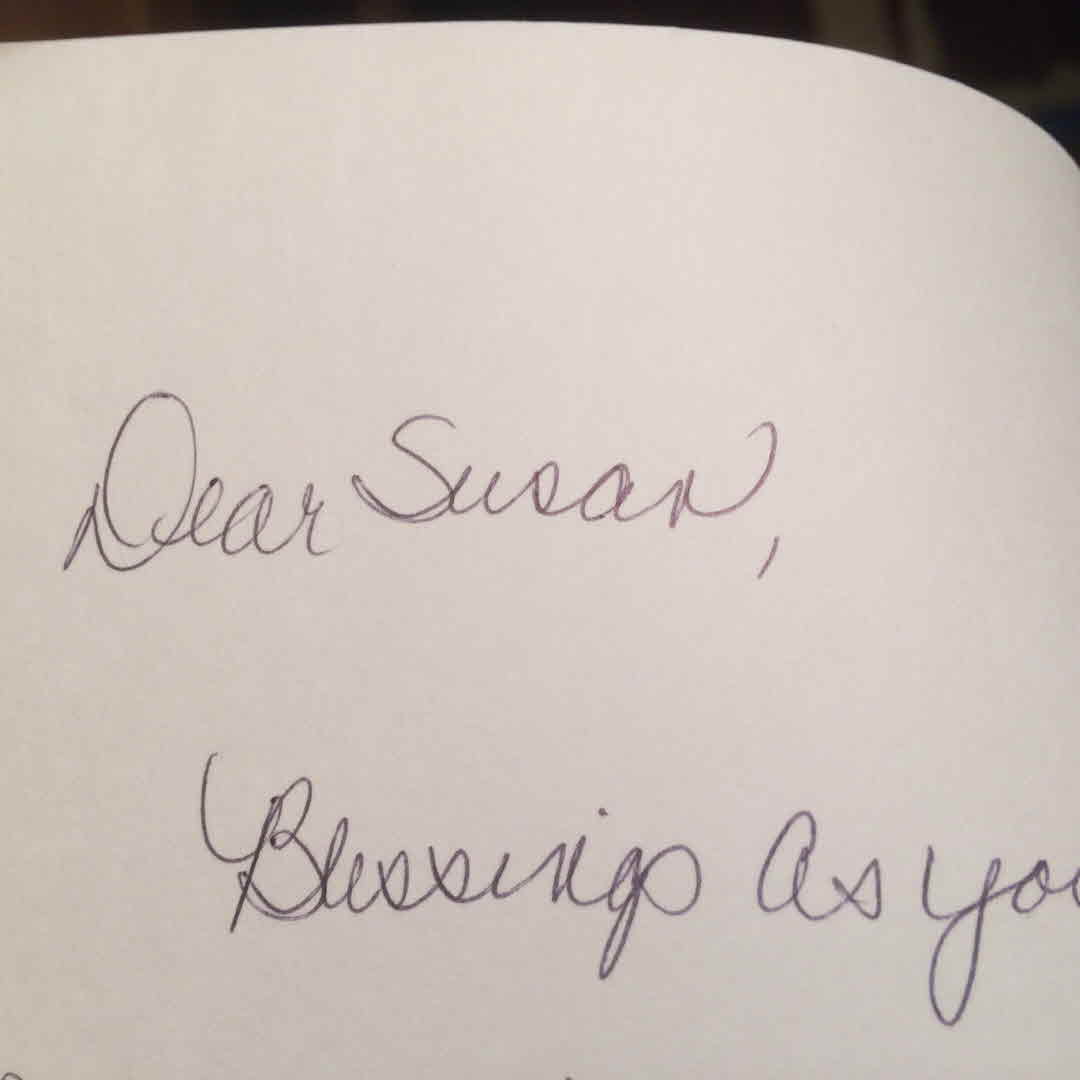 Dear Susan,
Blessings as you